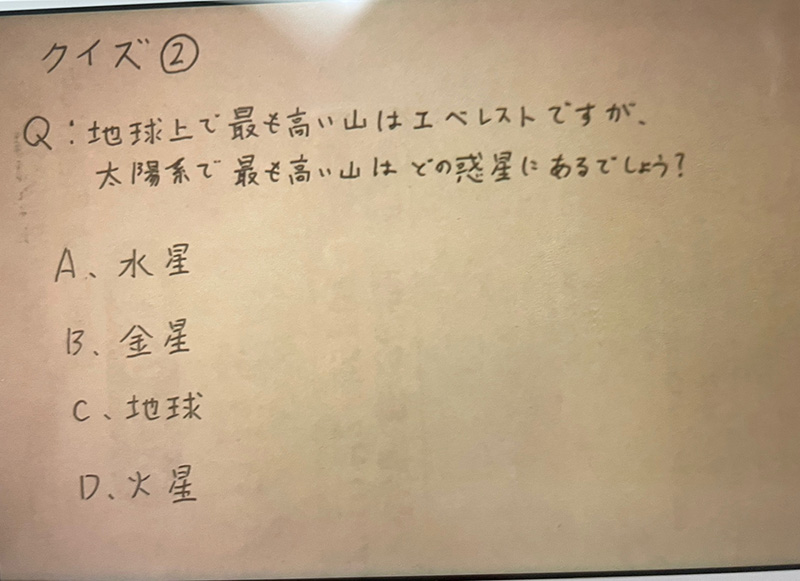 クイズ②
Q:地球上で最も高い山はエベレストですが、
太陽系で最も高い山はどの惑星にあるでしょう?
A、水星
B、金星
C、地球
D、火星